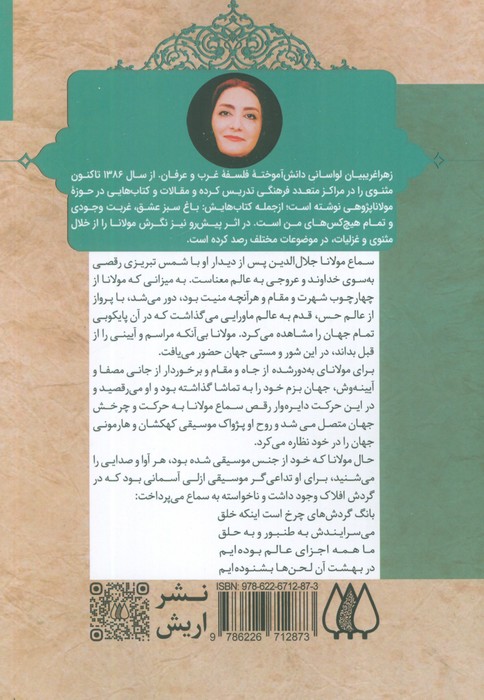 زهرا غریبیان لواسانی دانش‌آموختهٔ فلسفهٔ غرب و عرفان. از سال ۱۳۸۶ تاکنون
مثنوی را در مراکز متعدد فرهنگی تدریس کرده و مقالات و کتاب‌هایی در حوزهٔ
مولاناپژوهی نوشته است؛ ازجمله کتاب‌هایش: باغ سبز عشق، غربت وجودی
و تمام هیچ‌کس‌های من است. در اثر پیش‌رو نیز نگرش مولانا را از خلال
مثنوی و غزلیات، در موضوعات مختلف رصد کرده است.
سماع مولانا جلال‌الدین پس از دیدار او با شمس تبریزی رقصی
به‌سوی خداوند و عروجی به عالم معناست. به میزانی که مولانا از
چهارچوب شهرت و مقام و هرآنچه منیت بود، دور می‌شد، با پرواز
از عالم حس، قدم به عالم ماورایی می‌گذاشت که در آن پایکوبی
تمام جهان را مشاهده می‌کرد. مولانا بی‌آنکه مراسم و آیینی را از
قبل بداند، در این شور و مستی جهان حضور می‌یافت.
برای مولانای به‌دورشده از جاه و مقام و برخوردار از جانی مصفا و
آیینه‌وش، جهان بزم خود را به تماشا گذاشته بود و او می‌رقصید و
در این حرکت دایره‌وار رقص سماع مولانا به حرکت و چرخش
جهان متصل می شد و روح او پژواک موسیقی کهکشان و هارمونی
جهان را در خود نظاره می‌کرد.
حال مولانا که خود از جنس موسیقی شده بود، هر آوا و صدایی را
می‌شنید، برای او تداعی‌گر موسیقی ازلی آسمانی بود که در
گردش افلاک وجود داشت و ناخواسته به سماع می‌پرداخت:
بانگ گردش‌های چرخ است اینکه خلق
می‌سرایندش به طنبور و به حلق
ما همه اجزای عالم بوده‌ایم
در بهشت آن لحن‌ها بشنوده‌ایم
نشر
اریش
ISBN: 978-622-6712-87-3
9 786226 712873